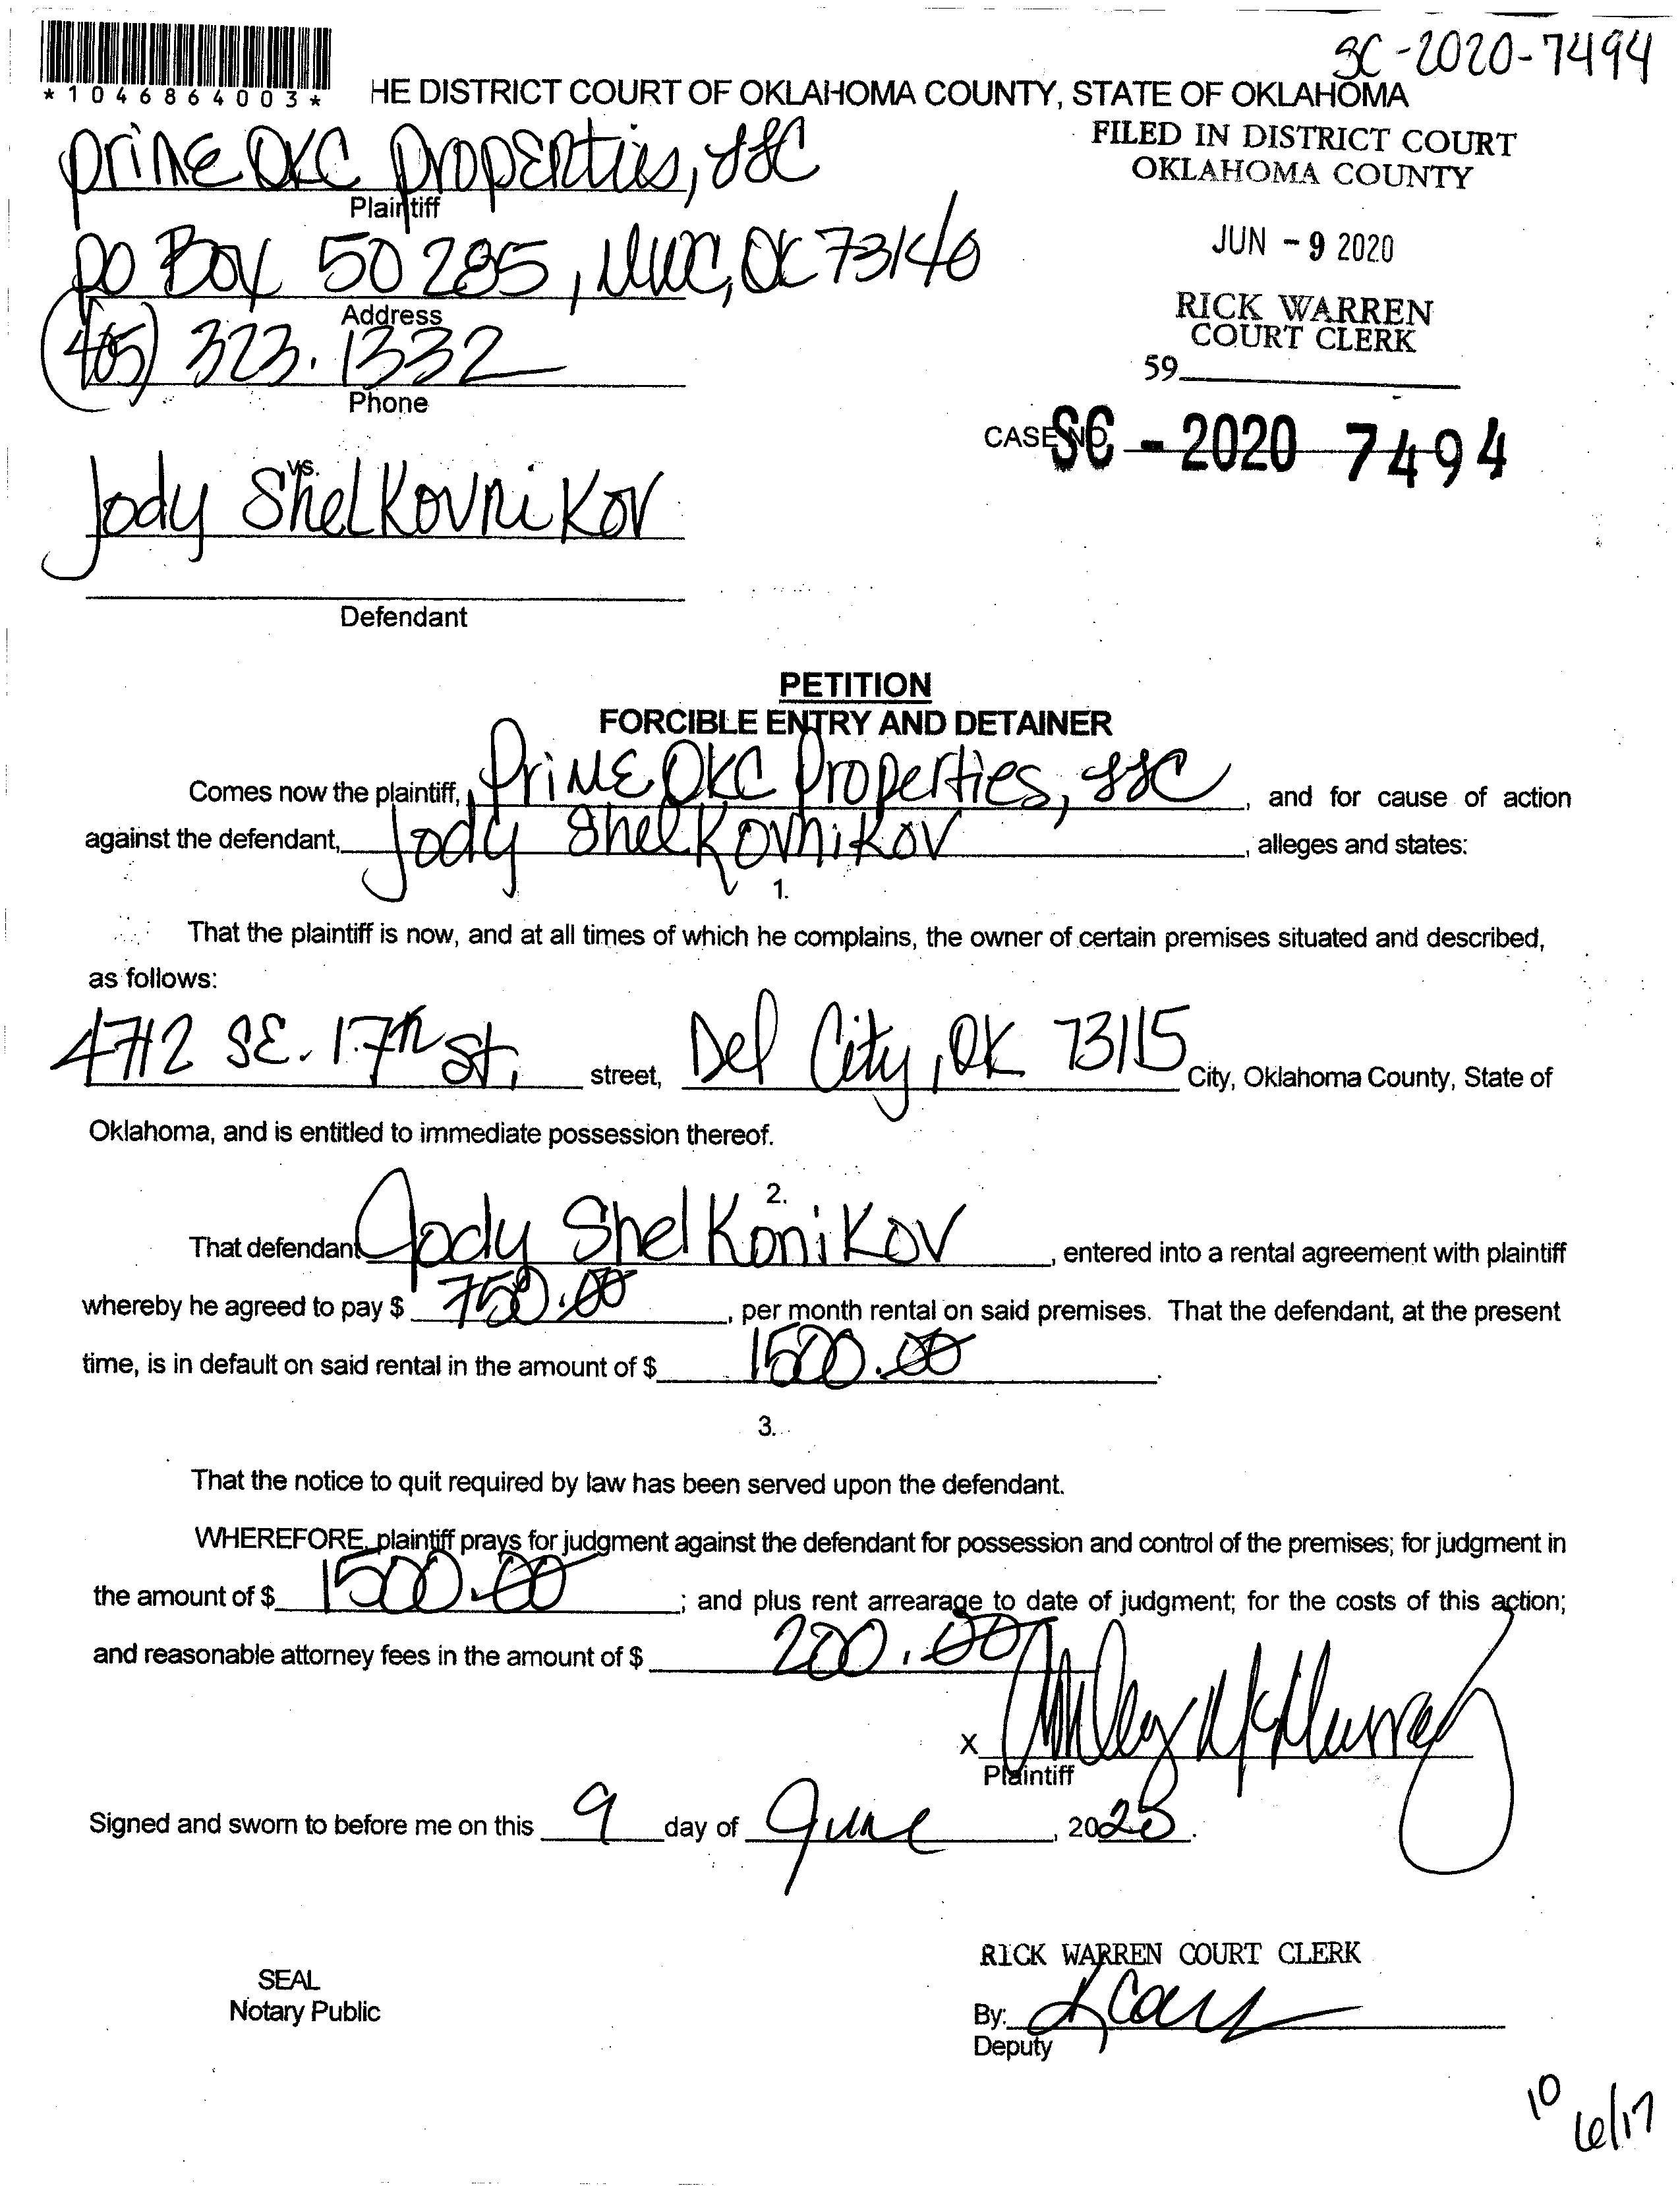 SC-2020-7494
*1046864003*
HE DISTRICT COURT OF OKLAHOMA COUNTY, STATE OF OKLAHOMA
FILED IN DISTRICT COURT
OKLAHOMA COUNTY
Prime OKC Properties, LLC
Plaintiff
JUN - 9 2020
PO Box 50285, MWC, OK 73140
Address
RICK WARREN
COURT CLERK
59
(405) 323.1332
Phone
CASE NO. SC - 2020 7494
vs.
Jody Shelkovnikov
Defendant
PETITION
FORCIBLE ENTRY AND DETAINER
Comes now the plaintiff, Prime OKC Properties, LLC, and for cause of action
against the defendant, Jody Shelkovnikov, alleges and states:
1.
That the plaintiff is now, and at all times of which he complains, the owner of certain premises situated and described,
as follows:
4712 SE. 17th St. street, Del City, OK 73115 City, Oklahoma County, State of
Oklahoma, and is entitled to immediate possession thereof.
2.
That defendant Jody Shelkonikov, entered into a rental agreement with plaintiff
whereby he agreed to pay $ 750.00, per month rental on said premises. That the defendant, at the present
time, is in default on said rental in the amount of $ 1500.00.
3.
That the notice to quit required by law has been served upon the defendant.
WHEREFORE, plaintiff prays for judgment against the defendant for possession and control of the premises; for judgment in
the amount of $ 1500.00; and plus rent arrearage to date of judgment; for the costs of this action;
and reasonable attorney fees in the amount of $ 200.00
X
Plaintiff
Signed and sworn to before me on this 9 day of June, 2020.
RICK WARREN COURT CLERK
SEAL
Notary Public
By:
Deputy
10
6/17